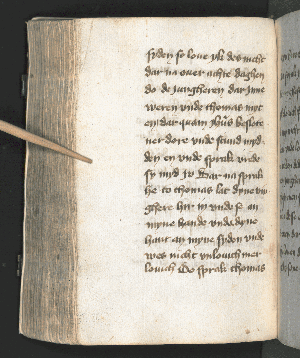 syden so love yk des nicht
dar na over achte daghen
do de jungheren dar jnne
weren vnde thomas myt
en dar quam jhūs beslote
ner dore vnde stund myd
den en vnde sprak vrede
sy myd jv Dar na sprak
he to thomas lat dyne vin
ghere hir in vnde se an
myne hande vnde dyne
hant an myne syden vnde
wes nicht vnlouich mer
louich Do sprak thomas